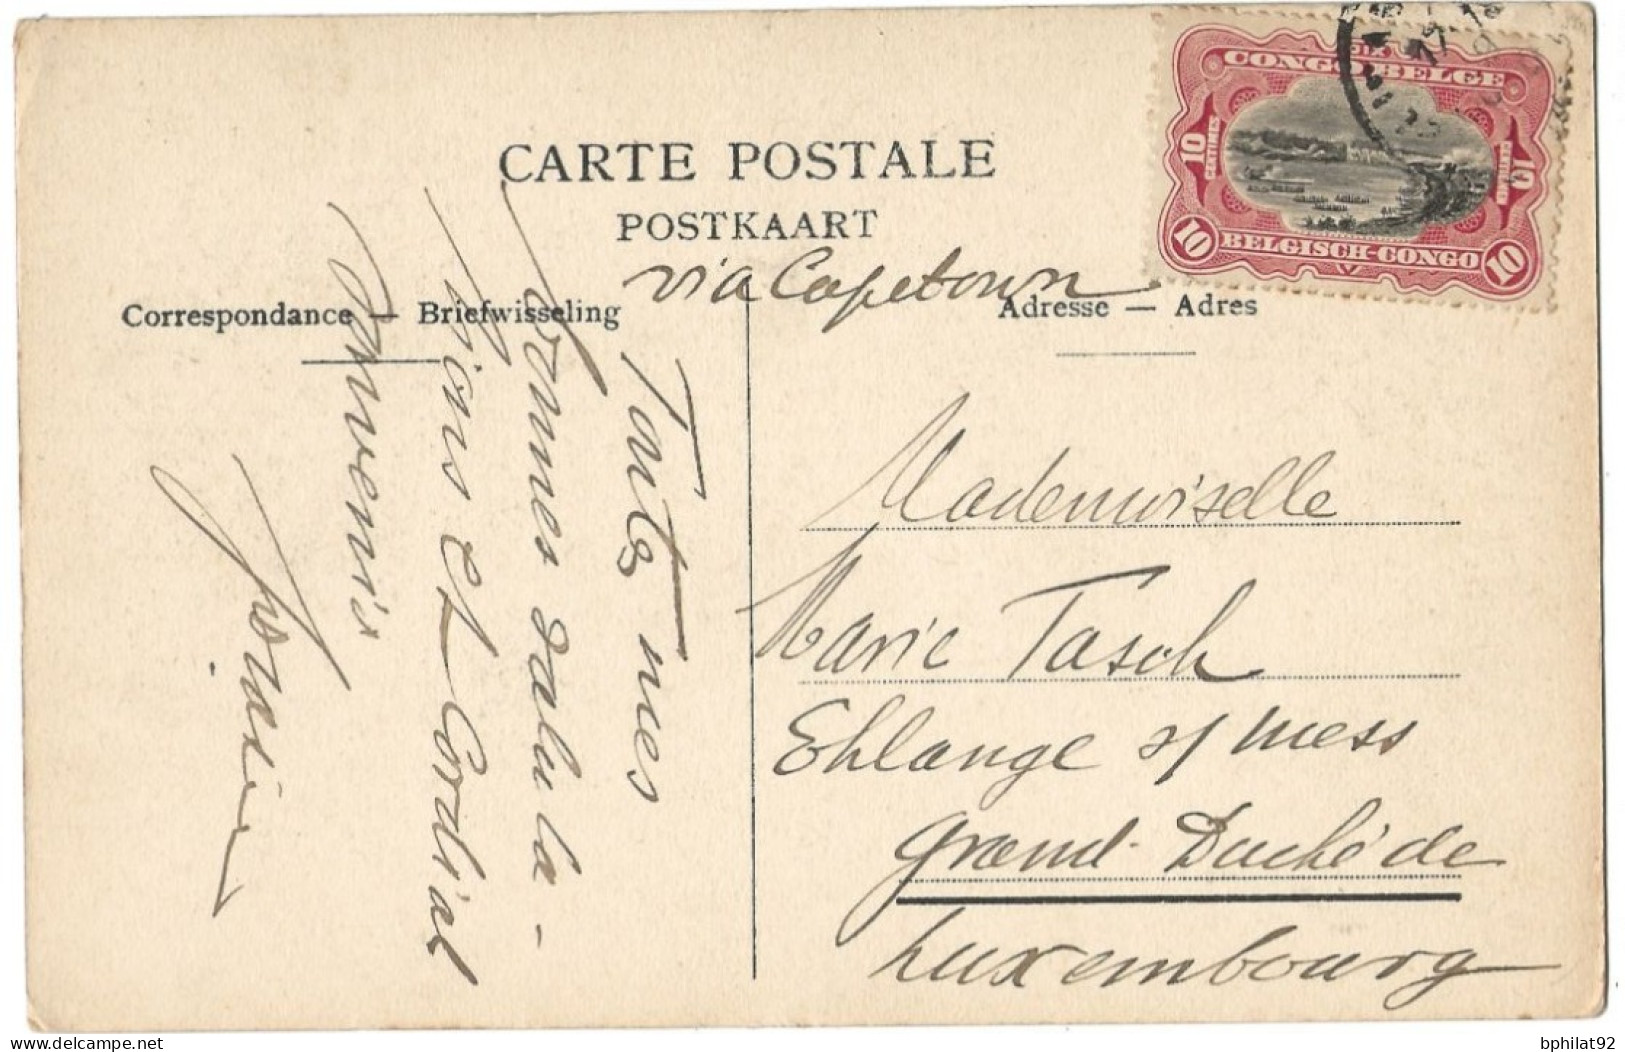 CARTE POSTALE
POSTKAART
via Capetown
Correspondance — Briefwisseling
Adresse — Adres
DIX
CONGO BELGE
10 CENTIMES
10 CENTIEMEN
10 BELGISCH-CONGO 10
Toutes mes
bonnes saluta-
tions et Cordial
Souvenir
Mademoiselle
Marie Tasch
Ehlange s/ mess
Grand-Duché de
Luxembourg
bphilat92